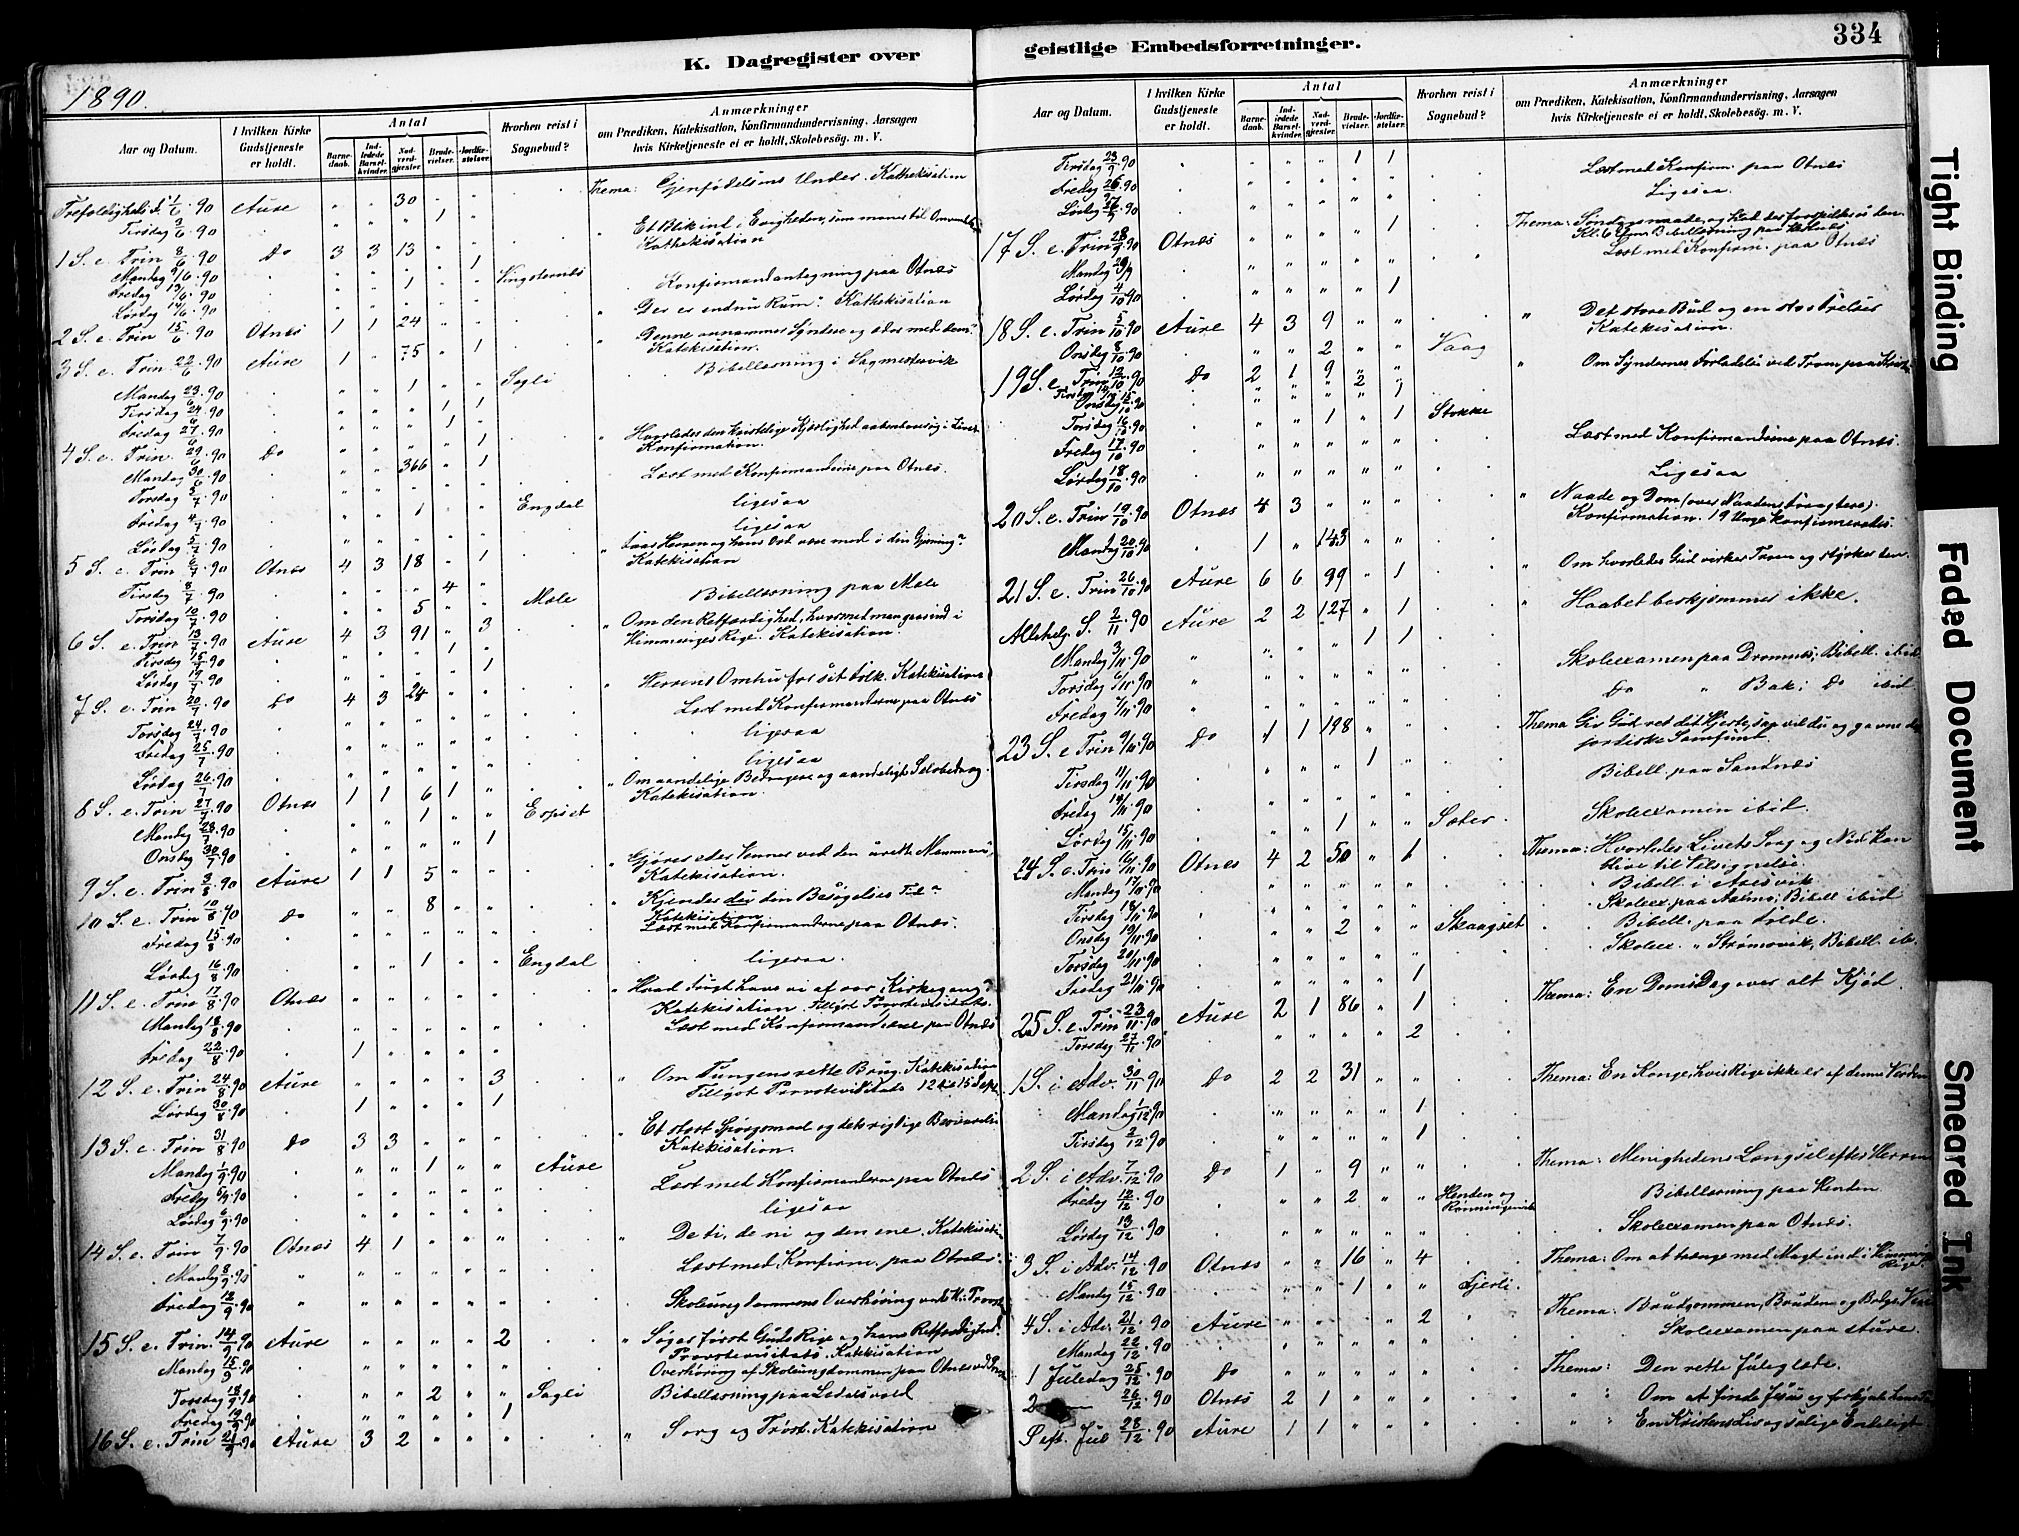 K. Dagregister over geistlige Embedsforretninger.
334
1890.
Aar og Datum.
I hvilken Kirke Gudstjeneste er holdt.
Antal
Barne-daab.
Ind-ledede Barsel-kvinder.
Nad-verd-gjester.
Brude-vielser.
Jordfæ-stelser.
Hvorhen reist i Sognebud?
Anmærkninger
om Prædiken, Katekisation, Konfirmandundervisning, Aarsagen
hvis Kirketjeneste ei er holdt, Skolebesøg. m. V.
Trefoldigheds f. 1/6. 90 Aure " " 30 Thema: Gjenfødelsens Under. Kathekisation
Tirsdag 3/6. 90 " " " 1 "
1 S. e. Trin 8/6. 90 Do 3 3 13 " " " Et Blik ind i Evigheden, som maner til Omvendelse
Kathekisation
Mandag 9/6. 90 1
Fredag 13/6. 90 1 Vingsternes
Lørdag 14/6. 90 Konfirmandantagning paa Otnæs
2 S. e. Trin 15/6. 90 Otnæs 1 1 24 " " " Der er endnu Rum". Kathekisation
3 S. e. Trin. 22/6. 90 Aure 1 " 75 " 1 " Denne annammer Syndere og æder med dem"
Katekisation.
Bibellæsning i
Mandag 23/6. 90 " " 1 " " Sagli
Tirsdag 24/6. 90 " " " 1 1
Fredag 27/6. 90 " " " 1 "
4 S. e. Trin. 29/6. 90 Do " " 366 " 1 " Hvorledes den kristelige Kjærlighed aabenbarer sig i Livet
Konfirmation.
Mandag 30/6. 90
Torsdag 3/7. 90 Læst med Konfirmanderne paa Otnæs.
Fredag 4/7. 90 1 Engdal ligesaa
Lørdag 5/7. 90 ligesaa
5 S. e. Trin 6/7. 90 Otnæs 4 3 18 " 1 " Lad Herren og hans Ord være med i din Gjerning"
Katekisation
Tirsdag 8/7. 90 " " " 4 "
Torsdag 10/7. 90 " " 5 " " Mæle Bibellæsning paa Mæle
6 S. e. Trin 13/7. 90 Aure 4 3 91 " 3 " Om den Retfærdighed, hvormed man gaar ind i
Himmeriges Rige. Katekisation.
Tirsdag 15/7. 90 1
Lørdag 19/7. 90 1
7 S. e. Trin 20/7. 90 Do 4 3 24 " " " Herrens Omhu for sit Folk. Katekisation
Torsdag 24/7. 90 Læst med Konfirmanderne paa Otnæs
Fredag 25/7. 90 ligesaa
Lørdag 26/7. 90 ligesaa
8 S. e. Trin 27/7. 90 Otnæs 1 1 6 1 " " Om aandelige Bedragere og aandeligt Selvbedrag.
Katekisation.
Mandag 28/7. 90 " " 1 " " Espset
Onsdag 30/7. 90 " " " " 1
9 S. e. Trin 3/8. 90 Aure 1 1 5 " " " Gjører eder Venner ved den urette Mammon"
Katekisation.
10 S. e. Trin 10/8. 90 Do " " 8 " " " Kjendes der den Besøgelses Tid"
Katekisation
Fredag 15/8. 90 Læst med Konfirmanderne paa Otnæs.
Lørdag 16/8. 90 " " 1 " " Engdal ligesaa.
11 S. e. Trin 17/8. 90 Otnæs " " " " " " Hvad Frugt have vi af vor Kirkegang?
Katekisation.
Mandag 18/8. 90 Læst med Konfirmanderne paa Otnæs
Fredag 22/8. 90 1 " " " "
12 S. e. Trin 24/8. 90 Aure " " " " 3 " Om Tungens rette Brug. Katekisation
Lørdag 30/8. 90 1 " " " 1
13 S. e. Trin 31/8. 90 Do 3 3 " " " " Et stort Spørgsmaal og dets rigtige Besvarelse
Katekisation.
Mandag 1/9. 90 " " 1 " " Aure
Fredag 5/9. 90 Læst med Konfirmanderne paa Otnæs
Lørdag 6/9. 90 ligesaa
14 S. e. Trin 7/9. 90 Otnæs 4 1 " " " " De ti, de ni og den ene. Katekisation
Mandag 8/9. 90 Læst med Konfirm. paa Otnæs.
Fredag 12/9. 90 Skoleungdommens Overhøring ved
15 S. e. Trin. 14/9. 90 Aure " " " " 2 " Søger først Guds Rige og hans Retfærdighed.
Provstevisitats. Katekisation
Mandag 15/9. 90 Overhøring af Skoleungdommen paa Otnæs
Torsdag 18/9. 90 " " 2 " " Sagli Bibellæsning paa
Fredag 19/9. 90 " " " " 1
16 S. e. Trin 21/9. 90 Aure 3 2 " " " " Sorg og Trøst. Katekisation
Aar og Datum.
I hvilken Kirke Gudstjeneste er holdt.
Antal
Barne-daab.
Ind-ledede Barsel-kvinder.
Nad-verd-gjester.
Brude-vielser.
Jordfæ-stelser.
Hvorhen reist i Sognebud?
Anmærkninger
om Prædiken, Katekisation, Konfirmandundervisning, Aarsagen
hvis Kirketjeneste ei er holdt, Skolebesøg. m. V.
Tirsdag 23/9. 90 " " " 1 1
Fredag 26/9. 90 Læst med Konfirm. paa Otnæs
Lørdag 27/9. 90 Ligesaa
17 S. e. Trin 28/9. 90 Otnæs " " " " 1 Thema:
Kl. 6
Mandag 29/9 Læst med Konfirm. paa Otnæs
Lørdag 4/10. 90 " " " " 1
18 S. e. Trin 5/10. 90 Aure 4 3 9 " " " Det store Bud og en stor Frelser
Katekisation.
Onsdag 8/10. 90 " " 2 " " Vaag
19 S. e. Trin 12/10. 90 Do 2 1 9 " " " Om Syndernes Forladelse ved Troen paa Kristus
Tirsdag 14/10 2
Onsdag 15/10. 90 1
Torsdag 16/10. 90 " " 1 " 1 Stokke
Fredag 17/10. 90 Læst med Konfirmanderne paa Otnæs.
Lørdag 18/10. 90 Ligesaa
20 S. e. Trin 19/10. 90 Otnæs 4 3 " " " " Naade og Dom (over Naadens Foragtere).
Konfirmation. 19 Unge konfirmeredes.
Mandag 20/10. 90 1 " 143 " "
21 S. e. Trin 26/10. 90 Aure 6 6 99 " 1 " Om hvorledes Gud virker Troen og styrker den.
Allehelg. S. 2/11. 90 Aure 2 2 127 " 1 " Haabet beskjæmmer ikke.
Mandag 3/11. 90 " " " 1 1
Torsdag 6/11. 90 Skoleexamen paa Dromnes; Bibell. ibid
Fredag 7/11. 90 Do " Bak; Do ibid
23 S. e Trin 9/11. 90 Do 1 1 198 " " Thema
Tirsdag 11/11. 90 " " " 1 "
Fredag 14/11. 90 Bibell. paa Sandnæs
Lørdag 15/11. 90 " " 1 " " Sæter. Skoleexamen ibid.
24 S. e. Trin 16/11. 90 Otnæs 4 2 50 " 1 Thema: Hvorledes Livets Sorg og Nød kan
blive til Velsignelse.
Mandag 17/11. 90 Bibell. i Aresvik
Tirsdag 18/11. 90 Skoleex. paa Aalmo; Bibell ibid
Onsdag 19/11. 90 " " 2 " " Skaagset Bibell. paa Folde.
Torsdag 20/11. 90 Skoleex. " Strømsvik, Bibell. ib.
Fredag 21/11. 90 1
25 S. e. Trin 23/11. 90 Aure 2 1 86 " 1 Thema: En Domsdag over alt Kjød.
Torsdag 27/11. 90 2
1 S. i Adv. 30/11. 90 Do 2 2 31 " " Thema: En Konge, hvis Rige ikke er af denne Verden
Mandag 1/12. 90 " " " " 1
Tirsdag 2/12. 90 " " " " 1
2 S. i Adv. 7/12. 90 Do 1 " 9 " " Thema: Menighedens Længsel efter Herren
Fredag 12/12. 90 " " 2 " " Henden og Rønningsvik Bibellæsning paa Henden
Lørdag 13/12. 90 Skoleexamen paa Otnæs.
3 S. i Adv. 14/12. 90 Otnæs " " 16 " 4 Thema: Om at trænge med Magt ind i Himmeriges
Rige.
Mandag 15/12. 90 " " 1 " " Fjerli.
4 S. i Adv. 21/12. 90 Aure " " " " 2 Thema: Brudgommen, Bruden og
Mandag 22/12. 90 Skoleexamen paa Aure.
1 Juledag 25/12. 90 Do Thema: Den rette Juleglæde.
2 — 26/12. 90 Otnæs 2 1 " " " " Om at finde Jesus og
S eft. Jul 28/12. 90 Aure 1 1 " " " " En Kristens Liv og salige Endeligt
Tight Binding
Faded Document
Smeared Ink